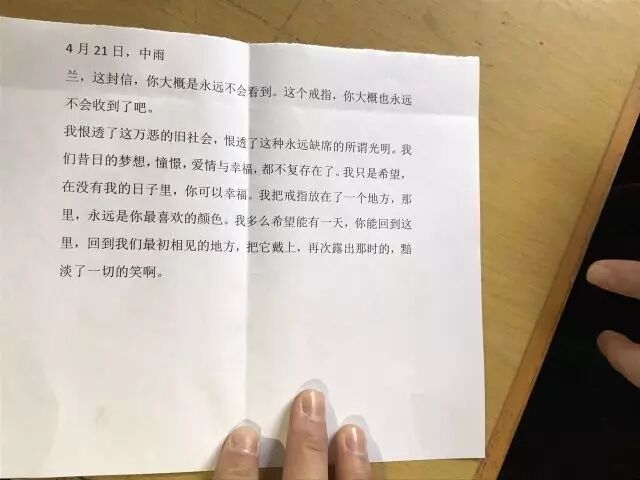 4 月 21 日，中雨
兰，这封信，你大概是永远不会看到。这个戒指，你大概也永远
不会收到了吧。
我恨透了这万恶的旧社会，恨透了这种永远缺席的所谓光明。我
们昔日的梦想，憧憬，爱情与幸福，都不复存在了。我只是希望，
在没有我的日子里，你可以幸福。我把戒指放在了一个地方，那
里，永远是你最喜欢的颜色。我多么希望能有一天，你能回到这
里，回到我们最初相见的地方，把它戴上，再次露出那时的，黯
淡了一切的笑啊。